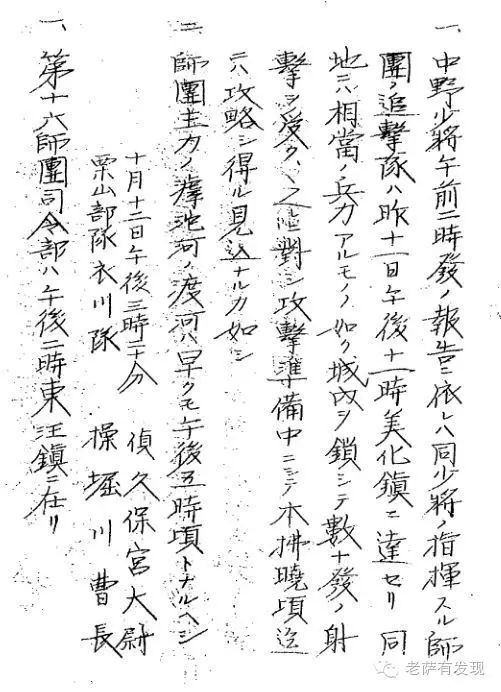 一、中野少将午前二時發ノ報告ニ依レハ同少将ノ指揮スル師
團ノ追撃隊ハ昨十一日午後十一時美化鎮ニ達セリ 同
地ニハ相當ノ兵力アルモノノ如ク城内ヲ鎖シテ數十發ノ射
撃ヲ受ク、之ニ對シ攻撃準備中ニシテ本拂曉頃迄
ニハ攻略シ得ル見込ナルカ如シ
二、師團主力ノ滹沱河ノ渡河ハ早クモ午後五時頃トナルヘシ
十月十二日午後三時二十分 偵久保宮大尉
栗山部隊衣川隊 操堀川曹長
一、第十六師團司令部ハ午後二時東汪鎮ニ在リ
老萨有发现